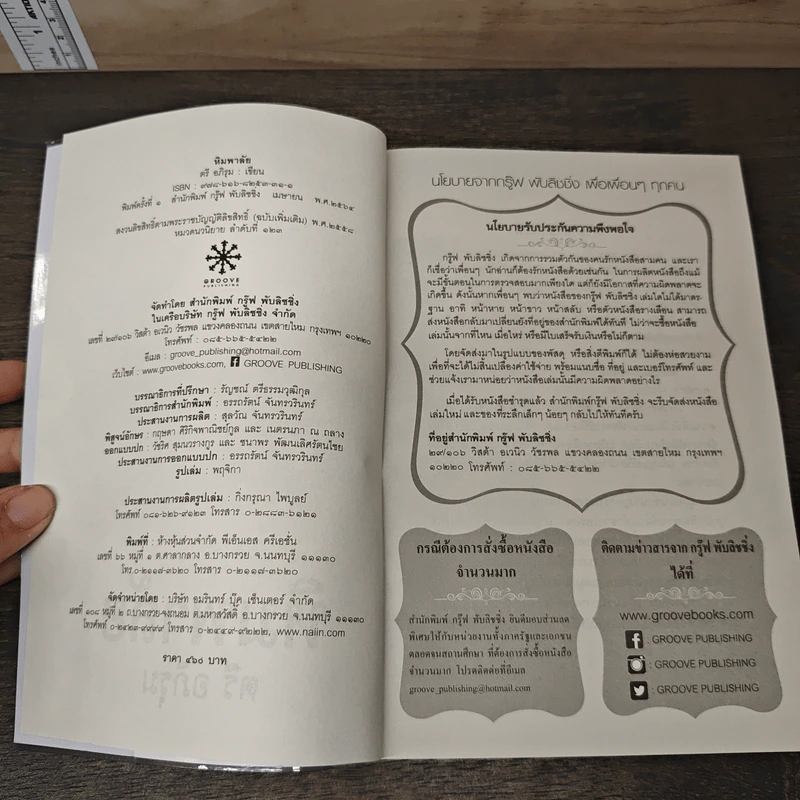 หิมพาลัย
ตรี อภิรุม : เขียน
ISBN : ๙๗๘-๖๑๖-๘๒๕๓-๓๑-๑
พิมพ์ครั้งที่ ๑ สำนักพิมพ์ กรู๊ฟ พับลิชชิ่ง เมษายน พ.ศ.๒๕๖๔
สงวนลิขสิทธิ์ตามพระราชบัญญัติลิขสิทธิ์ (ฉบับเพิ่มเติม) พ.ศ.๒๕๕๘
หมวดนวนิยาย ลำดับที่ ๑๒๓
GROOVE
PUBLISHING
จัดทำโดย สำนักพิมพ์ กรู๊ฟ พับลิชชิ่ง
ในเครือบริษัท กรู๊ฟ พับลิชชิ่ง จำกัด
เลขที่ ๒๗/๑๐๖ วิสต้า อเวนิว วัชรพล แขวงคลองถนน เขตสายไหม กรุงเทพฯ ๑๐๒๒๐
โทรศัพท์ : ๐๘๕-๖๖๕-๕๔๒๒
อีเมล : groove_publishing@hotmail.com
เว็บไซต์ : www.groovebooks.com, f GROOVE PUBLISHING
บรรณาธิการที่ปรึกษา : รัญชณ์ ตรีธรรมวุฒิกุล
บรรณาธิการสำนักพิมพ์ : อรรถรัตน์ จันทรวรินทร์
ประสานงานการผลิต : สุลวัณ จันทรวรินทร์
พิสูจน์อักษร : กฤษดา ศิริกิจพาณิชย์กูล และ เนตรนภา ณ ถลาง
ออกแบบปก : วัชริศ สุมนวรางกูร และ ชนาพร พัฒนเลิศรัตนไชย
ประสานงานการออกแบบปก : อรรถรัตน์ จันทรวรินทร์
รูปเล่ม : พฤจิกา
ประสานงานการผลิตรูปเล่ม : กิ่งกรุณา ไพบูลย์
โทรศัพท์ ๐๘๑-๖๒๖-๙๑๒๓ โทรสาร ๐-๒๘๘๓-๖๑๒๑
พิมพ์ที่ : ห้างหุ้นส่วนจำกัด พีเอ็นเอส ครีเอชั่น
เลขที่ ๖๖ หมู่ที่ ๑ ต.ศาลากลาง อ.บางกรวย จ.นนทบุรี ๑๑๑๓๐
โทร.๐-๒๑๑๗-๓๖๒๐ โทรสาร ๐-๒๑๑๗-๓๖๒๐
จัดจำหน่ายโดย : บริษัท อมรินทร์ บุ๊ค เซ็นเตอร์ จำกัด
เลขที่ ๑๐๘ หมู่ที่ ๒ ถ.บางกรวย-จงถนอม ต.มหาสวัสดิ์ อ.บางกรวย จ.นนทบุรี ๑๑๑๓๐
โทรศัพท์ ๐-๒๔๒๓-๙๙๙๙ โทรสาร ๐-๒๔๔๙-๙๒๒๒, www.naiin.com
ราคา ๔๖๐ บาท
นโยบายจากกรู๊ฟ พับลิชชิ่ง เพื่อเพื่อนๆ ทุกคน
นโยบายรับประกันความพึงพอใจ
กรู๊ฟ พับลิชชิ่ง เกิดจากการรวมตัวกันของคนรักหนังสือสามคน และเรา
ก็เชื่อว่าเพื่อนๆ นักอ่านก็ต้องรักหนังสือด้วยเช่นกัน ในการผลิตหนังสือถึงแม้
จะมีขั้นตอนในการตรวจสอบมากเพียงใด แต่ก็ยังมีโอกาสที่ความผิดพลาดจะ
เกิดขึ้น ดังนั้นหากเพื่อนๆ พบว่าหนังสือของกรู๊ฟ พับลิชชิ่ง เล่มใดไม่ได้มาตร-
ฐาน อาทิ หน้าหาย หน้าขาว หน้าสลับ หรือตัวหนังสือรางเลือน สามารถ
ส่งหนังสือกลับมาเปลี่ยนยังที่อยู่ของสำนักพิมพ์ได้ทันที ไม่ว่าจะซื้อหนังสือ
เล่มนั้นจากที่ไหน เมื่อไหร่ หรือมีใบเสร็จรับเงินหรือไม่ก็ตาม
โดยจัดส่งมาในรูปแบบของพัสดุ หรือสิ่งตีพิมพ์ก็ได้ ไม่ต้องห่อสวยงาม
เพื่อที่จะได้ไม่สิ้นเปลืองค่าใช้จ่าย พร้อมแนบชื่อ ที่อยู่ และเบอร์โทรศัพท์ และ
ช่วยแจ้งเรามาหน่อยว่าหนังสือเล่มนั้นมีความผิดพลาดอย่างไร
เมื่อได้รับหนังสือชำรุดแล้ว สำนักพิมพ์กรู๊ฟ พับลิชชิ่ง จะรีบจัดส่งหนังสือ
เล่มใหม่ และของที่ระลึกเล็กๆ น้อยๆ กลับไปให้ทันทีครับ
ที่อยู่สำนักพิมพ์ กรู๊ฟ พับลิชชิ่ง
๒๗/๑๐๖ วิสต้า อเวนิว วัชรพล แขวงคลองถนน เขตสายไหม กรุงเทพฯ
๑๐๒๒๐ โทรศัพท์ : ๐๘๕-๖๖๕-๕๔๒๒
กรณีต้องการสั่งซื้อหนังสือ
จำนวนมาก
สำนักพิมพ์ กรู๊ฟ พับลิชชิ่ง ยินดีมอบส่วนลด
พิเศษไว้กับหน่วยงานทั้งภาครัฐและเอกชน
ตลอดจนสถานศึกษา ที่ต้องการสั่งซื้อหนังสือ
จำนวนมาก โปรดติดต่อที่อีเมล
groove_publishing@hotmail.com
ติดตามข่าวสารจาก กรู๊ฟ พับลิชชิ่ง
ได้ที่
www.groovebooks.com
f : GROOVE PUBLISHING
: GROOVE PUBLISHING
: GROOVE PUBLISHING